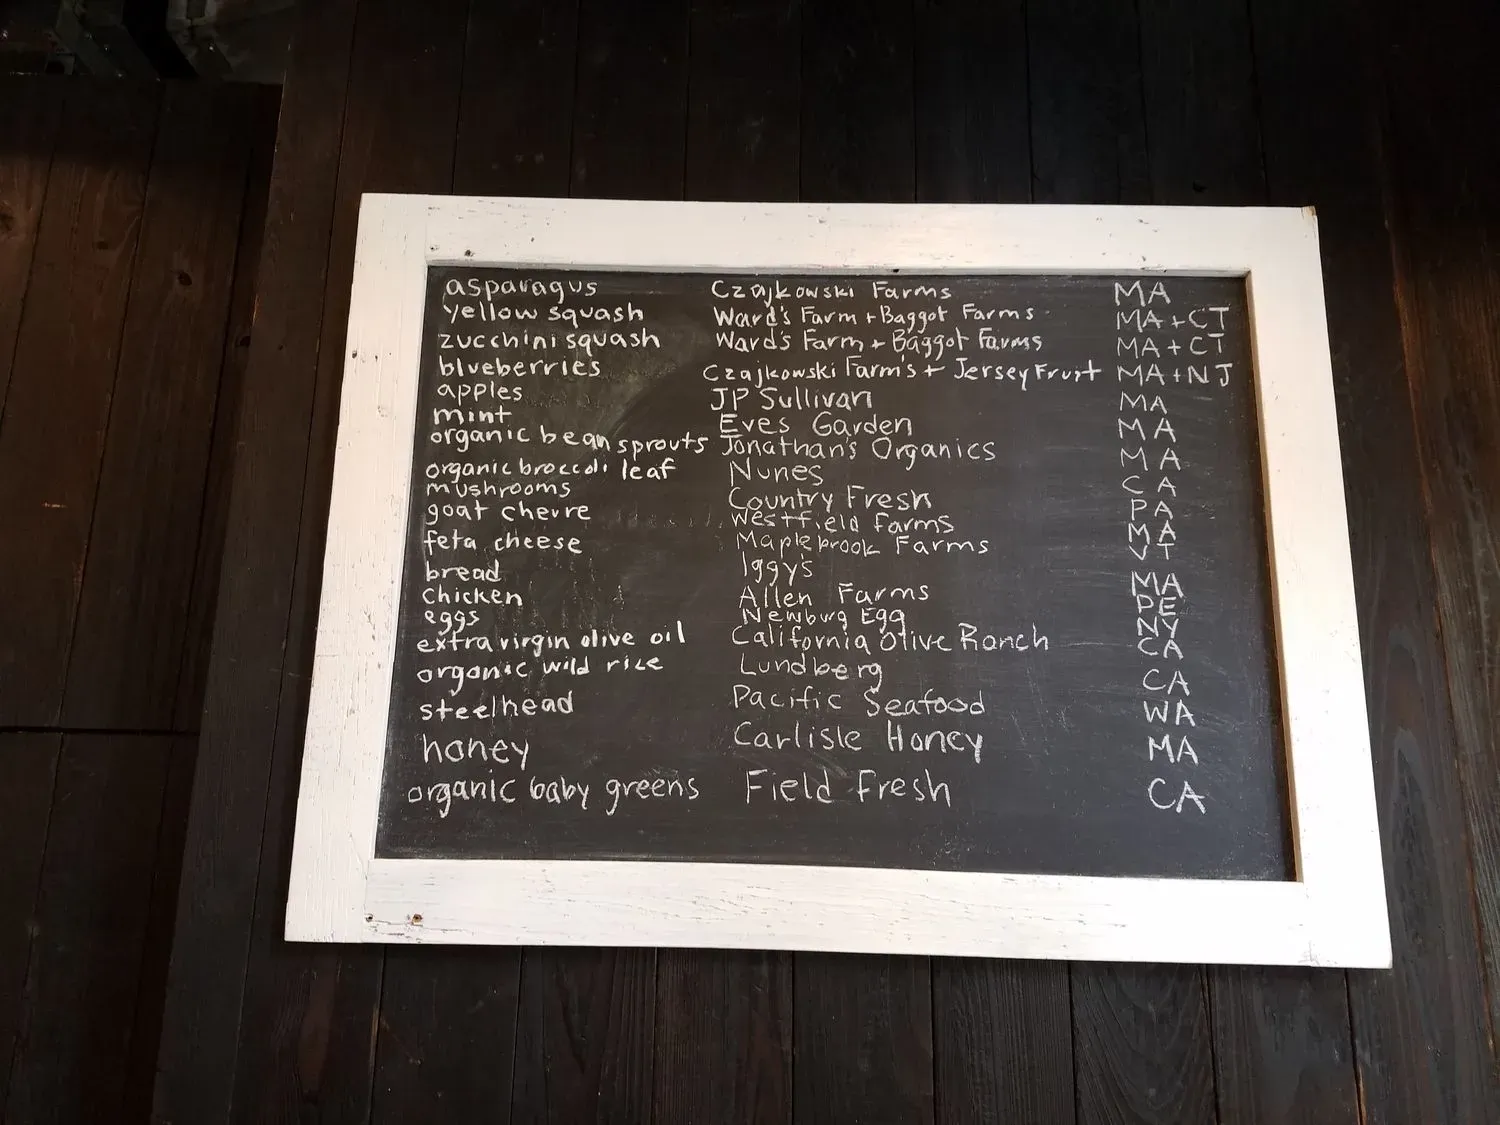 asparagus Czajkowski Farms MA
yellow squash Ward's Farm + Baggot Farms MA + CT
zucchini squash Ward's Farm + Baggot Farms MA + CT
blueberries Czajkowski Farm's + Jersey Fruit MA + NJ
apples JP Sullivan MA
mint Eves Garden MA
organic bean sprouts Jonathan's Organics MA
organic broccoli leaf Nunes CA
mushrooms Country Fresh PA
goat chevre Westfield Farms MA
feta cheese Maplebrook Farms VT
bread Iggy's MA
chicken Allen Farms DE
eggs Newburg Egg NY
extra virgin olive oil California Olive Ranch CA
organic wild rice Lundberg CA
steelhead Pacific Seafood WA
honey Carlisle Honey MA
organic baby greens Field Fresh CA